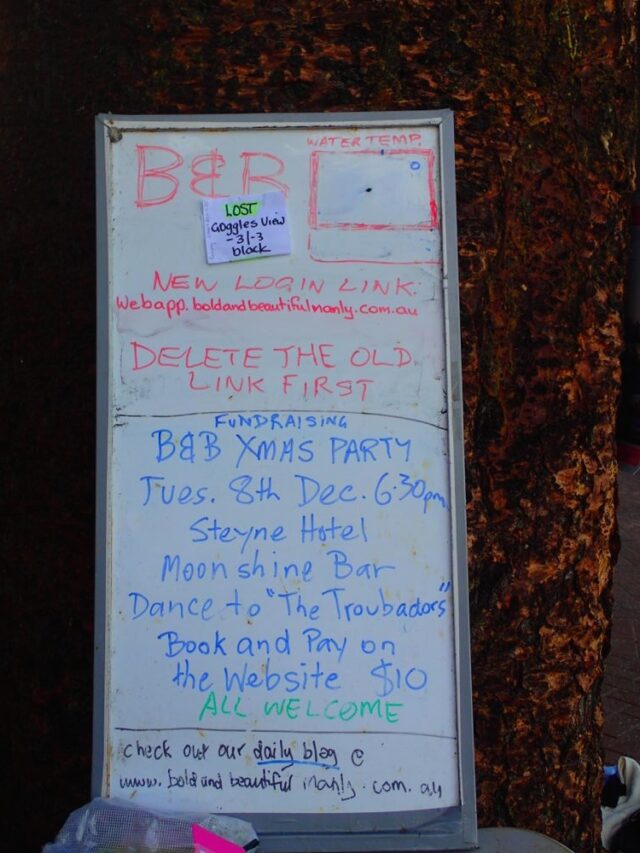 B&B
WATER TEMP.
LOST
Goggles View
-3/-3
black
NEW LOGIN LINK:
Webapp.boldandbeautifulmanly.com.au
DELETE THE OLD
LINK FIRST
FUNDRAISING
B&B XMAS PARTY
Tues. 8th Dec. 6.30pm
Steyne Hotel
Moonshine Bar
Dance to "The Troubadors"
Book and Pay on
the Website $10
ALL WELCOME
check out our daily blog @
www.boldandbeautifulmanly.com.au